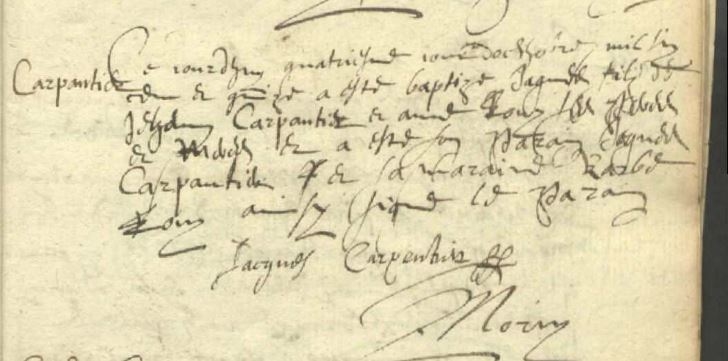 Carpantier
Ce jourdhuy quatriesme jour doctobre mil six
cent et quinze a este baptize Jaques filz de
Jehan Carpantier et anne Roux ses peres
et meres et a este son parain Jaques
Carpantier et sa maraine Barbe
Roux ainsy signe le parain
Jacques Carpentier
Morin